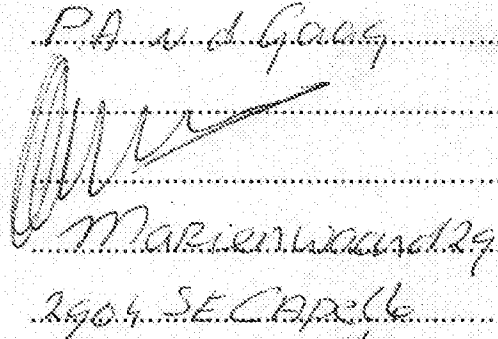 P.A v d Gaag
Marienwaard 29
2904 SE Capelle